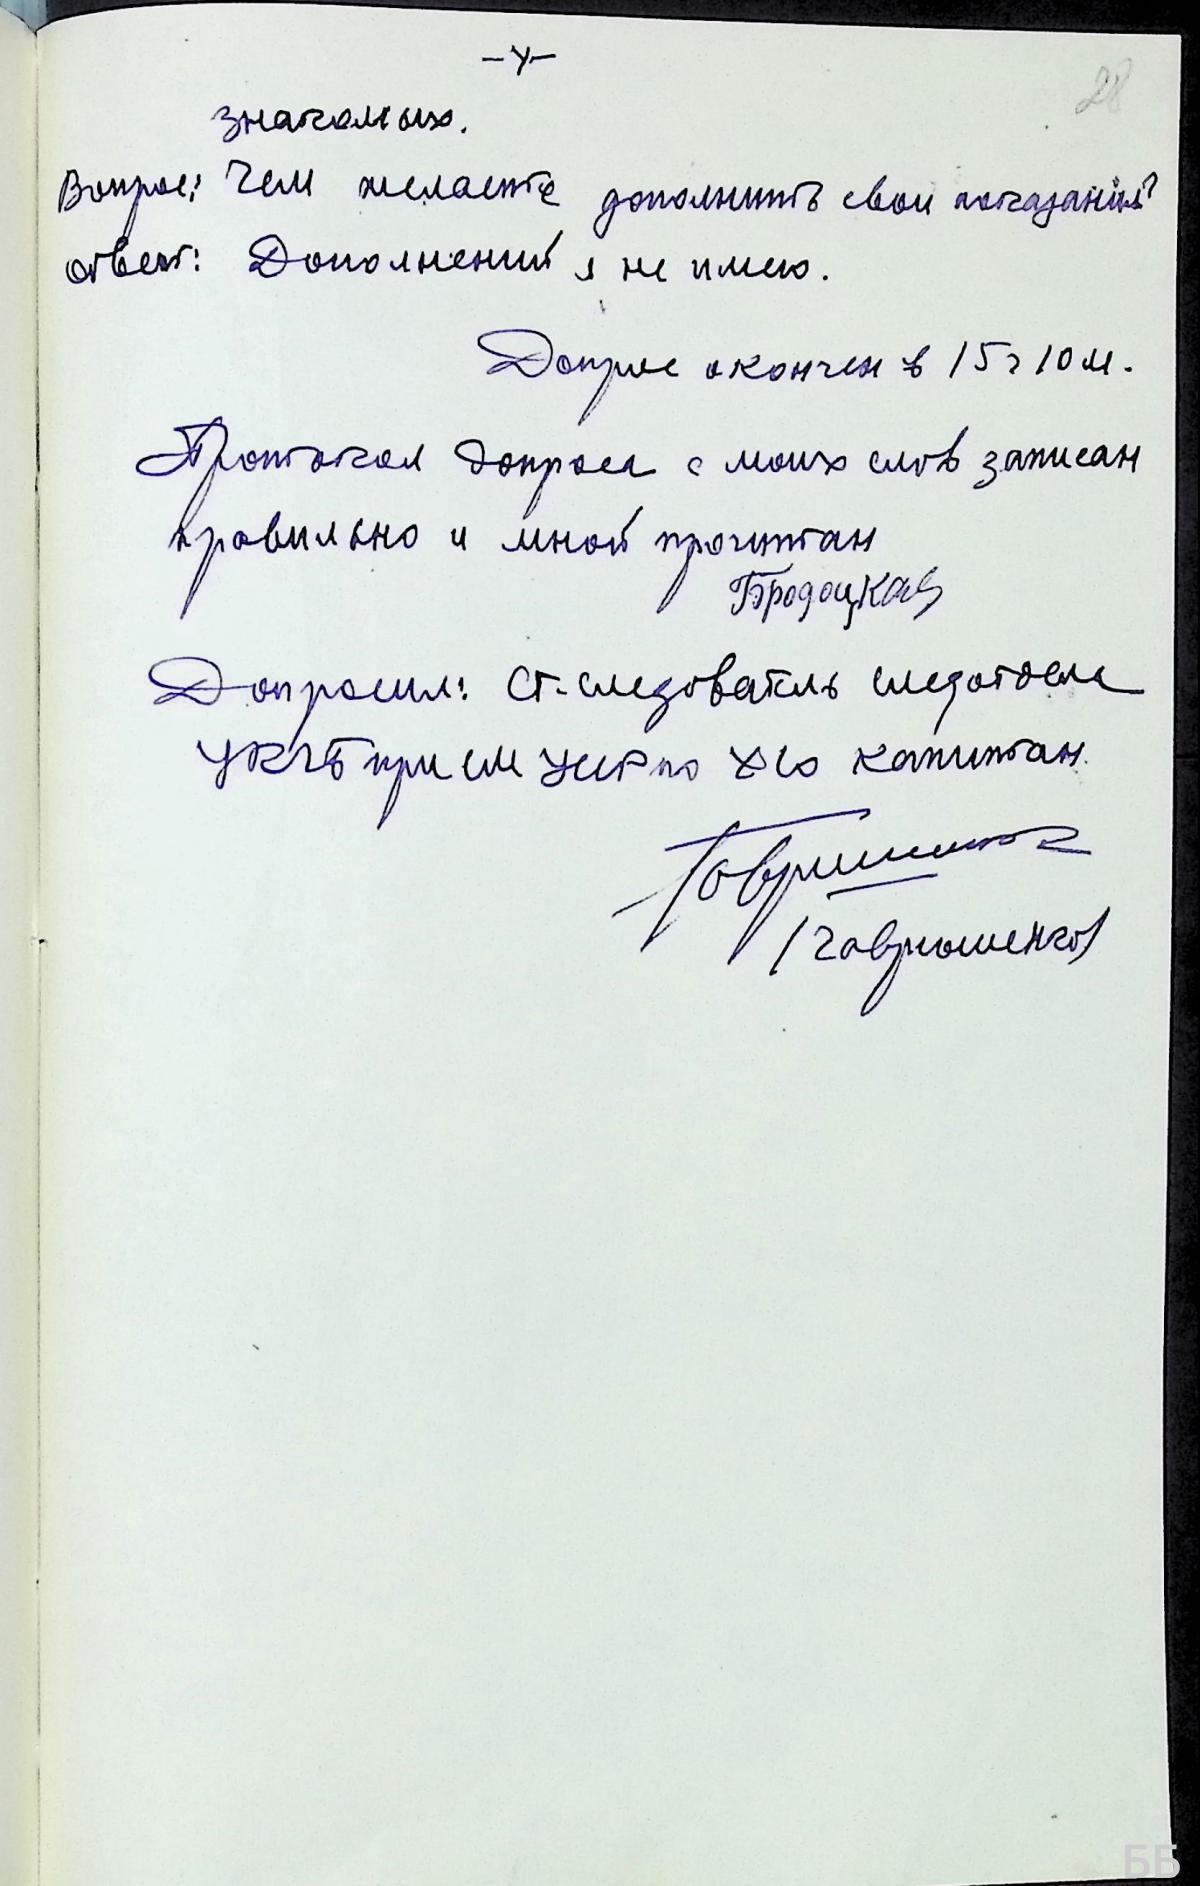 -4-
28
знакомых.
Вопрос: Чем желаете дополнить свои показания?
ответ: Дополнений я не имею.
Допрос окончен в 15 ч 10 м.
Протокол допроса с моих слов записан
правильно и мной прочитан
Бродоцкая
Допросил: ст. следователь следотдела
УКГБ при СМ УССР по ХО капитан
(Гаврюшенко)
ББ